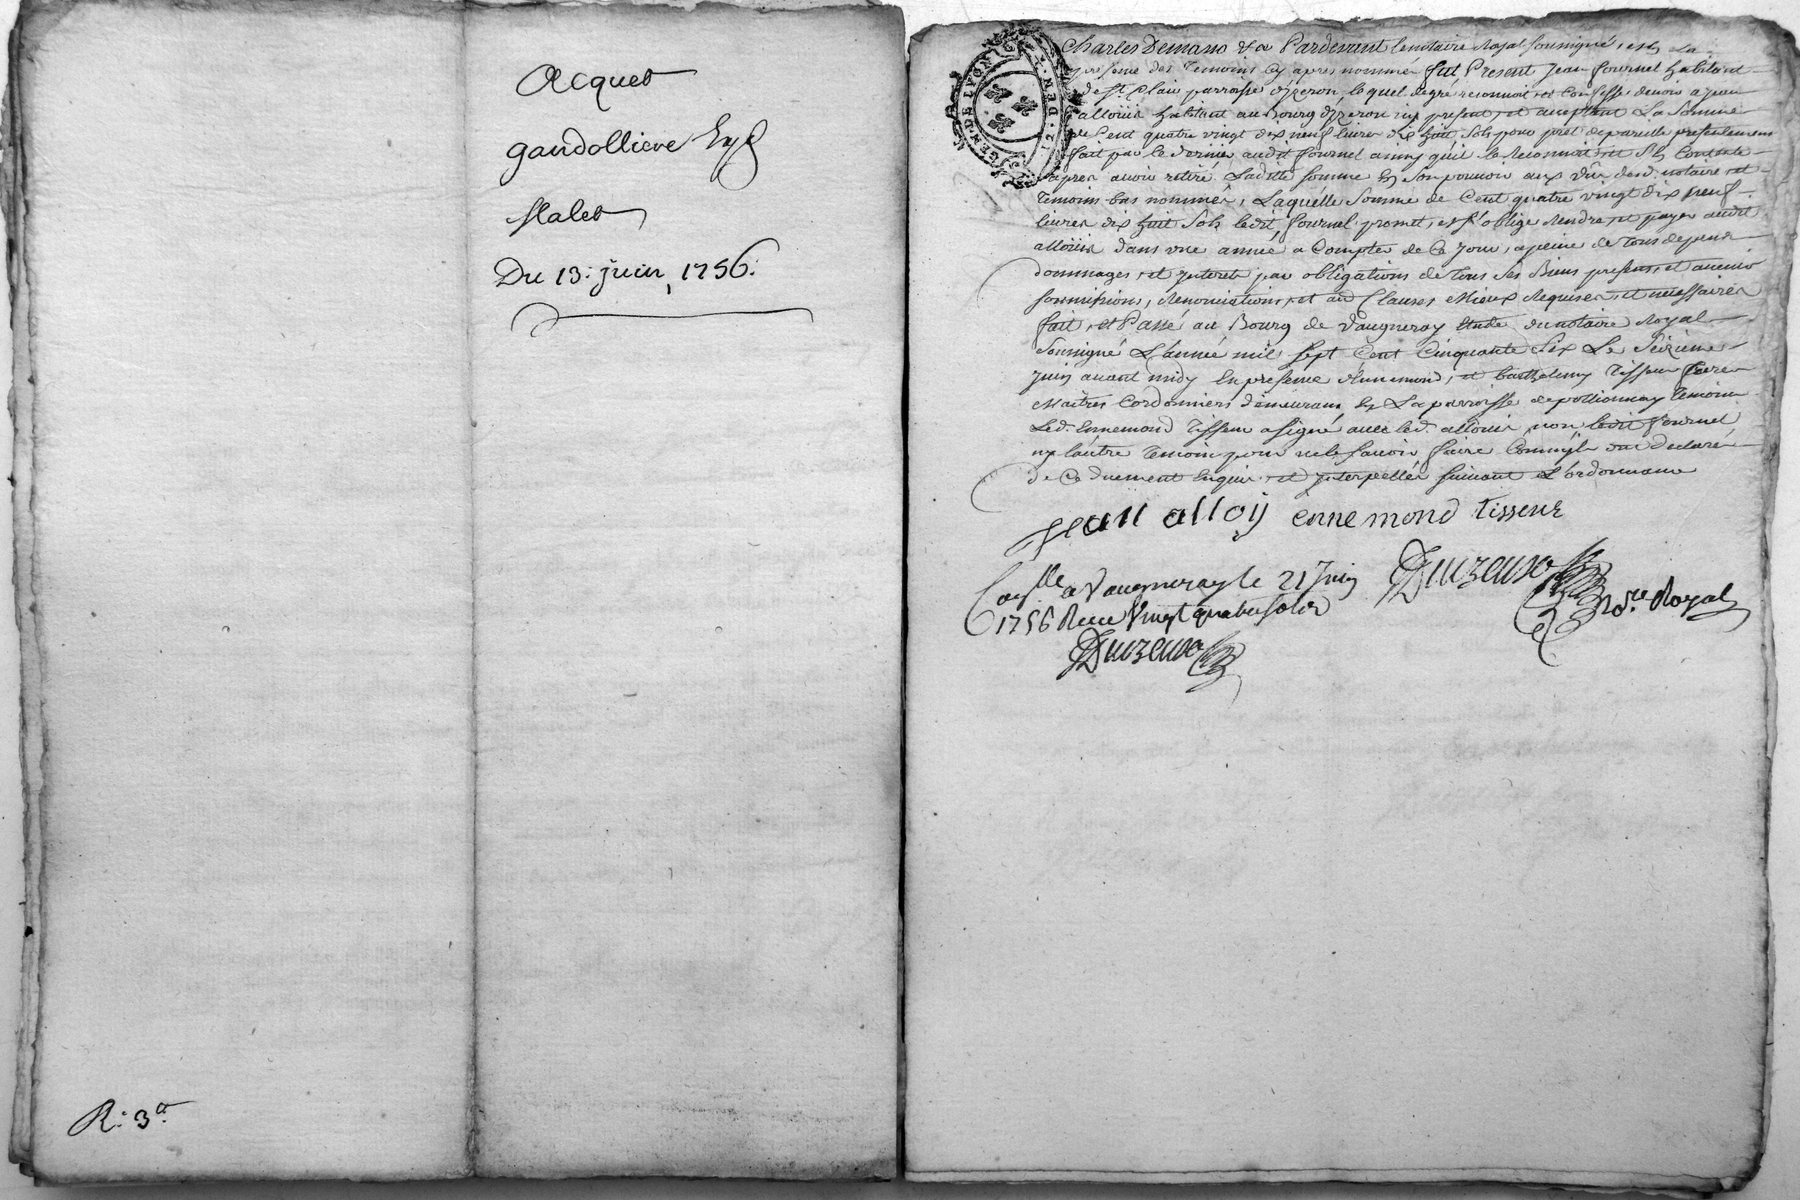 Acquet
gandolliere
Halet
Du 13: juin, 1756.
R: 3
GEN. DE LYON
Charles Demano Pardevant le notaire Royal soussigné, et en La
presence des Temoins cy apres nommés fut Present Jean fournel habitant
de St Clair parroisse d'izeron lequel de gré reconnoit et Confesse devoir a jean
allouis habitant au Bourg d'izeron icy present, et acceptant La Somme
de Cent quatre vingt dix neuf livres dix huit Sols pour prêt de pareille presentement
fait par le dernier audit fournel ainsy qu'il le Reconnoit et S'en Contente
apres avoir retiré Laditte somme en Son pouvoir aux Vûe desd. notaire et
Temoins bas nommés, Laquelle Somme de Cent quatre vingt dix neuf
livres dix huit Sols ledit fournel promet, et s'oblige Rendre et payer audit
allouis dans une année a Compter de Ce Jour, a peine de tous depens
dommages, et interets par obligations de tous Ses Biens presens, et avenir
soumissions, Renonciations, et autres Clauses Mieux Requises et necessaires
fait, et Passé au Bourg de Vaugneray étude du notaire Royal
Soussigné L'année mil Sept Cent Cinquante Six Le Seizieme
Juin avant midy En presence d'Ennemond, et Barthelemy Tisseur freres
Maitres Cordonniers demeurans en La parroisse de pollionnay Temoins
Led. Ennemond Tisseur a signé avec led. allouis non ledit fournel
ny l'autre Temoin pour ne le savoir faire Comme ils ont declaré
de Ce duement Enquis et interpellés suivant L'ordonnance
Jean alloij ennemond tisseur
Con.lle a Vaugneray le 21 Juin
1756 Receu Vingt quatre sols
Not.re Royal